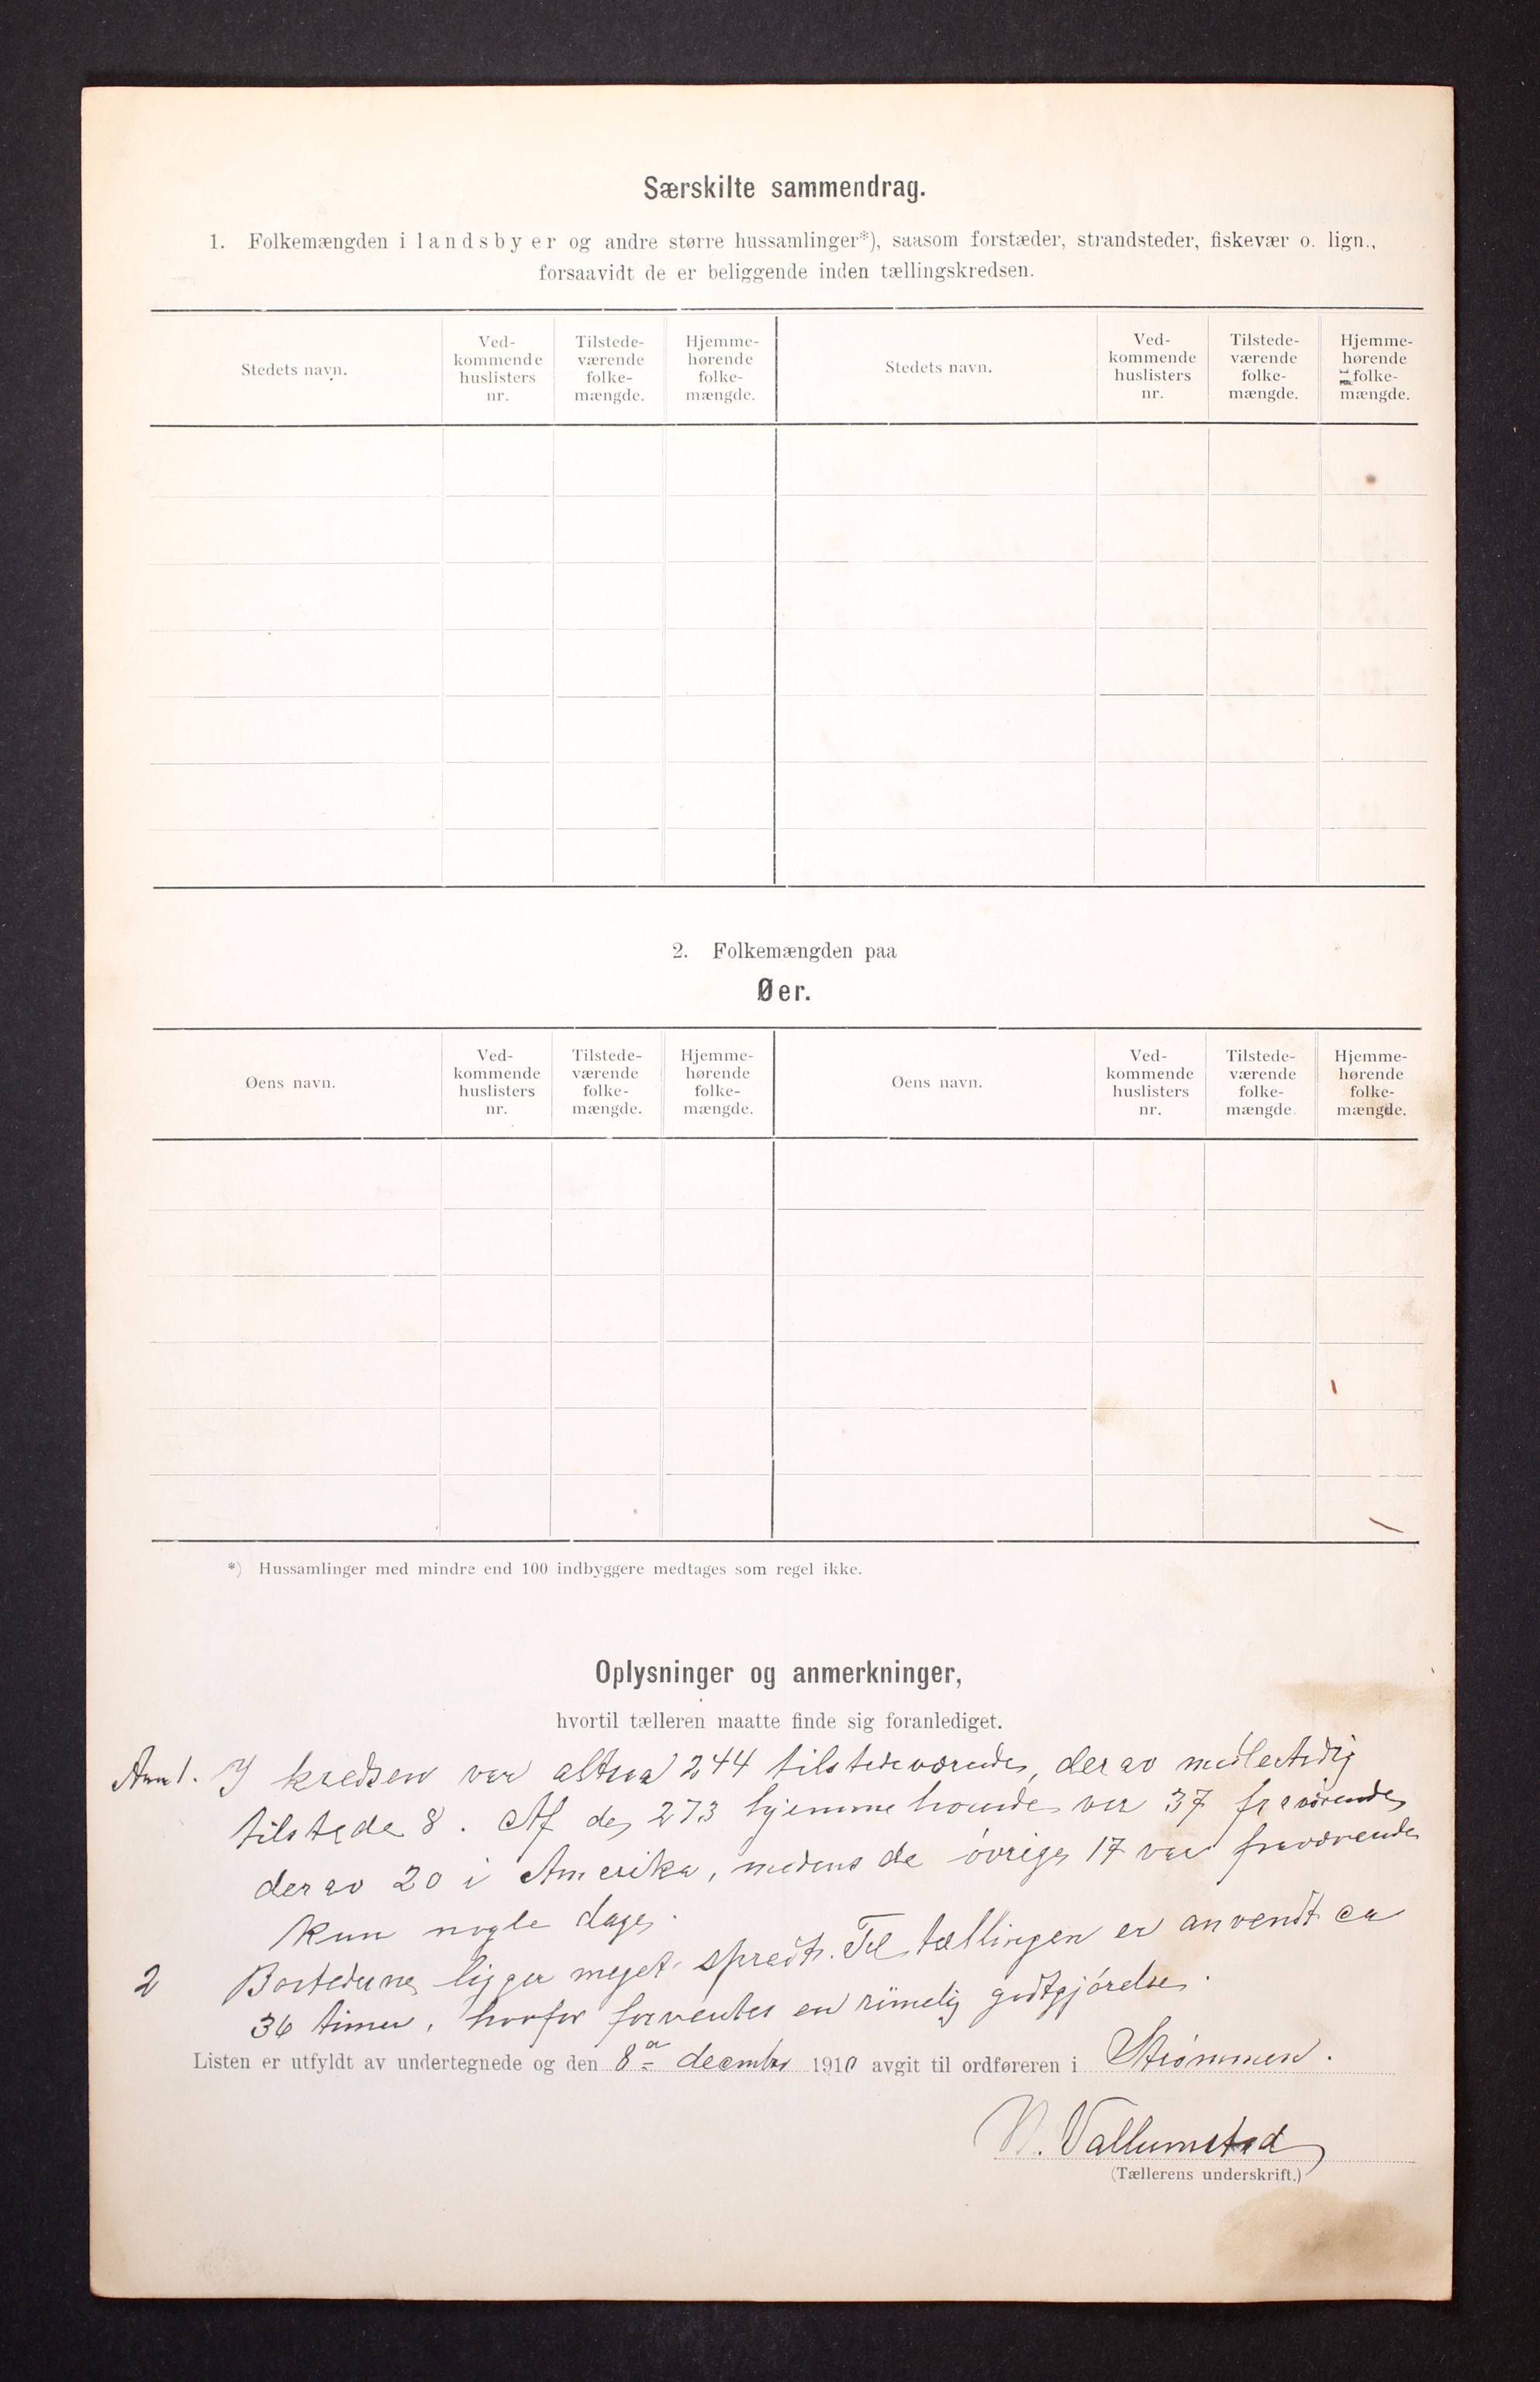 Særskilte sammendrag.
1. Folkemængden i landsbyer og andre større hussamlinger*), saasom forstæder, strandsteder, fiskevær o. lign.,
forsaavidt de er beliggende inden tællingskredsen.
Stedets navn.
Ved-
kommende
huslisters
nr.
Tilstede-
værende
folke-
mængde.
Hjemme-
hørende
folke-
mængde.
Stedets navn.
Ved-
kommende
huslisters
nr.
Tilstede-
værende
folke-
mængde.
Hjemme-
hørende
folke-
mængde.
2. Folkemængden paa
Øer.
Øens navn.
Ved-
kommende
huslisters
nr.
Tilstede-
værende
folke-
mængde.
Hjemme-
hørende
folke-
mængde.
Øens navn.
Ved-
kommende
huslisters
nr.
Tilstede-
værende
folke-
mængde
Hjemme-
hørende
folke-
mængde.
*) Hussamlinger med mindre end 100 indbyggere medtages som regel ikke.
Oplysninger og anmerkninger,
hvortil tælleren maatte finde sig foranlediget.
Anm 1. I kredsen var altsaa 244 tilstedeværende, derav midlertidig
tilstede 8. Af de 273 hjemmehørende var 37 fraværende,
derav 20 i Amerika, medens de øvrige 17 var fraværende
kun nogle dage.
2 Bostederne ligger meget spredt. Til tællingen er anvendt ca
36 timer, hvorfor forventes en rimelig godtgjørelse.
Listen er utfyldt av undertegnede og den 8de december 1910 avgit til ordføreren i Strømmen.
N. Vallumstad
(Tællerens underskrift.)